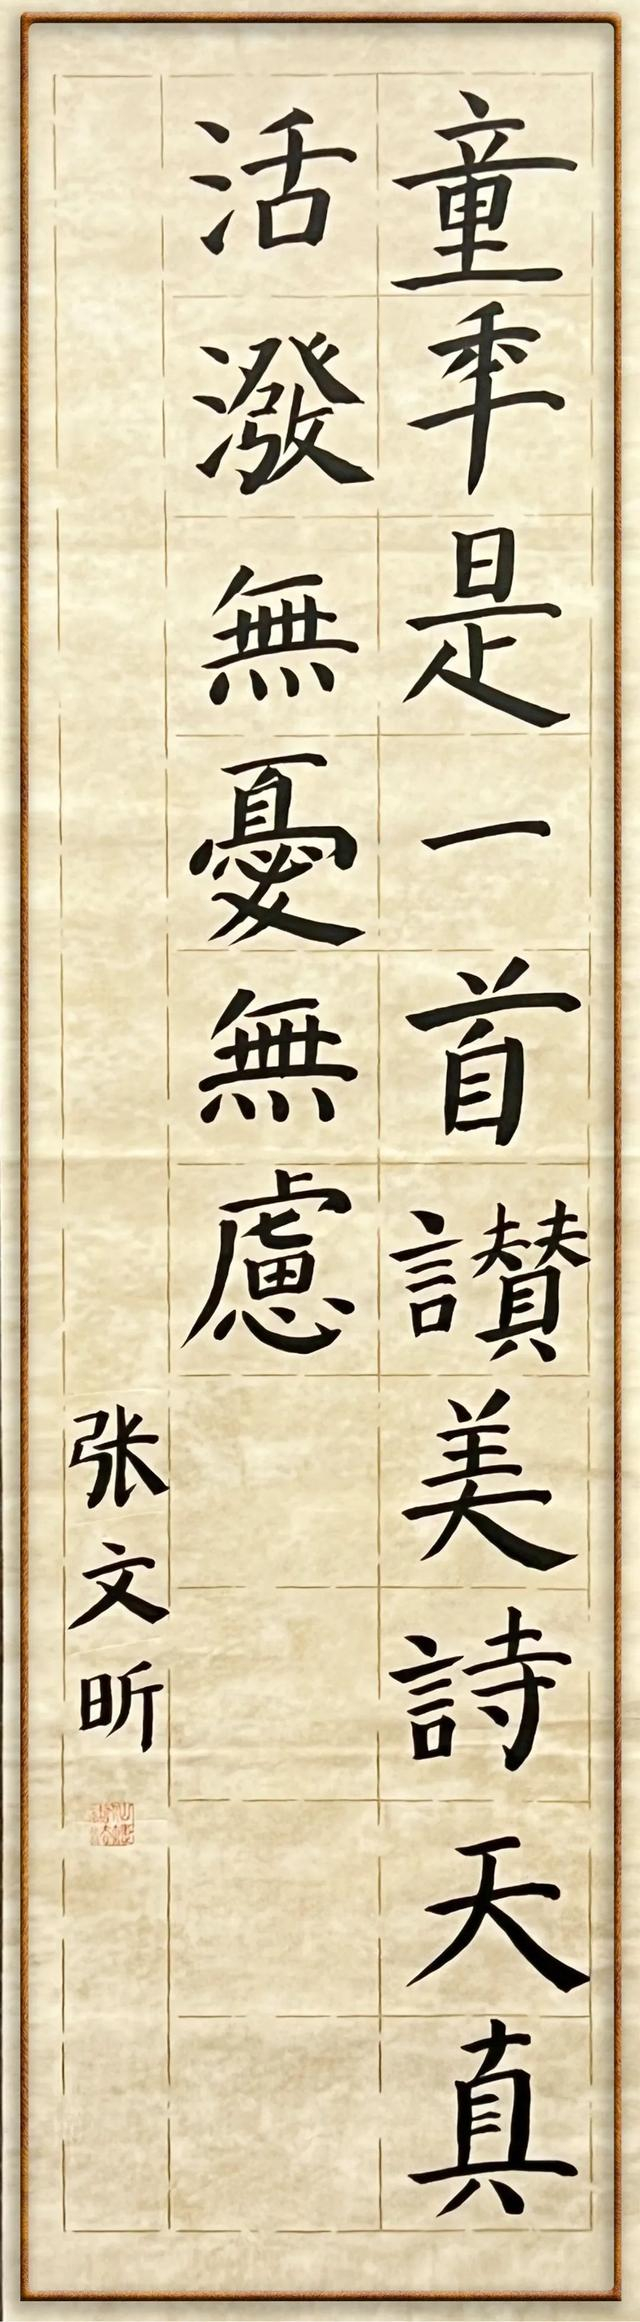 童年是一首讃美詩天真
活潑無憂無慮
张文昕